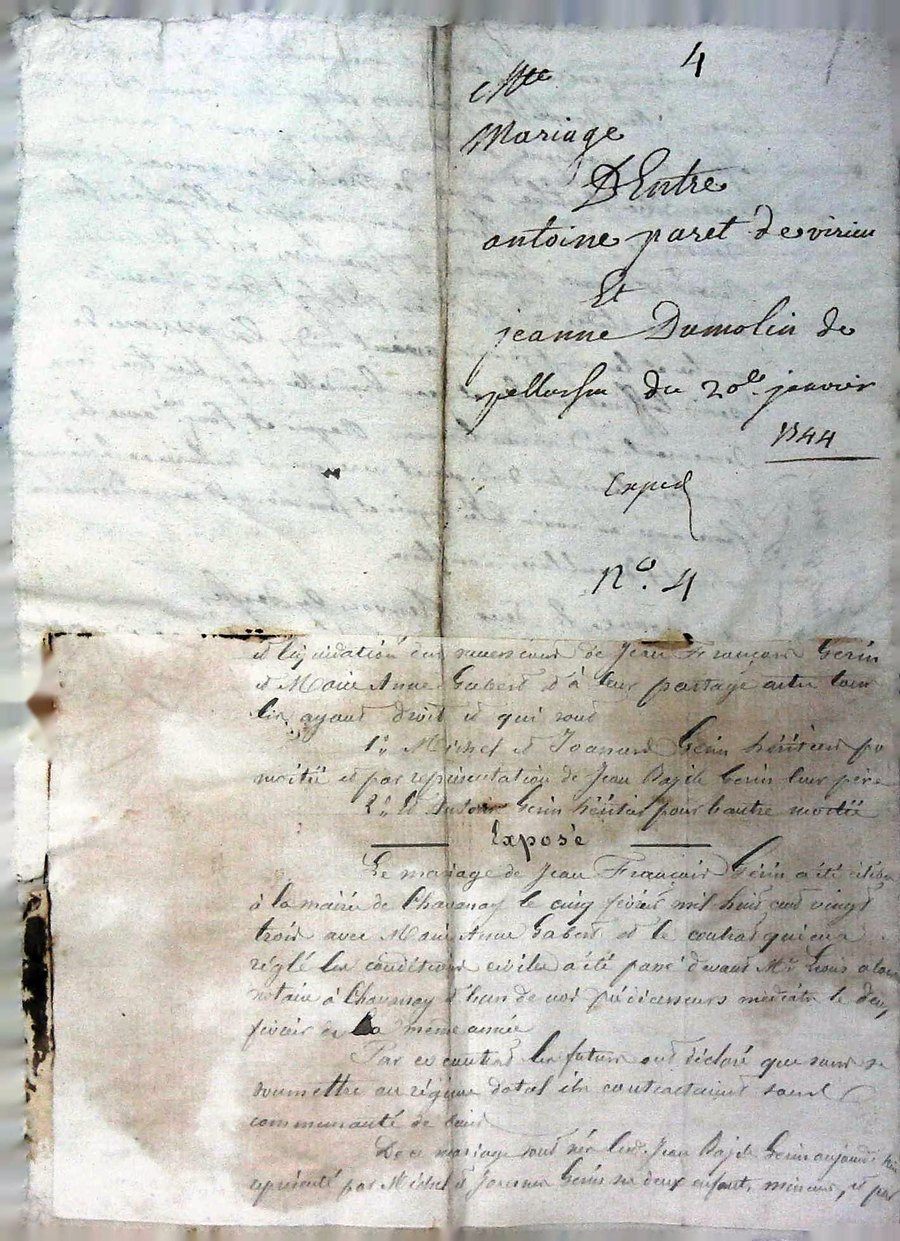 4
Mariage
D'Entre
antoine paret de virieu
Et
jeanne Dumolin de
pellussin du 20e janvier
1844
Exped
N°. 4
et liquidation des successions de Jean François Gerin
et Marie Anne Gabert et à leur partage entre leurs
ayant droit et qui sont
1° Michel et Joannes Gerin héritiers po
moitié et par représentation de Jean Bapte Gerin leur père
2° Et Antoine Gerin héritier pour l'autre moitié
Exposé
Le mariage de Jean François Gerin a été célébré
à la mairie de Chavanay le cinq février mil huit cent vingt
trois avec Marie Anne Gabert et le contrat qui en a
réglé les conditions civiles a été passé devant Me alors
notaire à Chavanay et l'un de nos prédécesseurs médiats le deux
février de la même année
Par ce contrat les futurs ont déclaré que sans se
soumettre au régime dotal ils contractaient sans
communauté de biens
De ce mariage sont nés Jean Bapte Gerin aujourd'hui
représenté par Michel et Joannes Gerin ses deux enfants mineurs, et par